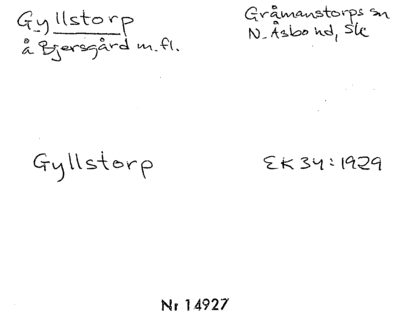 Gyllstorp
å Bjersgård m.fl.
Gråmanstorps sn
N. Åsbo hd, Sk
Gyllstorp
EK 34:1929
Nr 14927